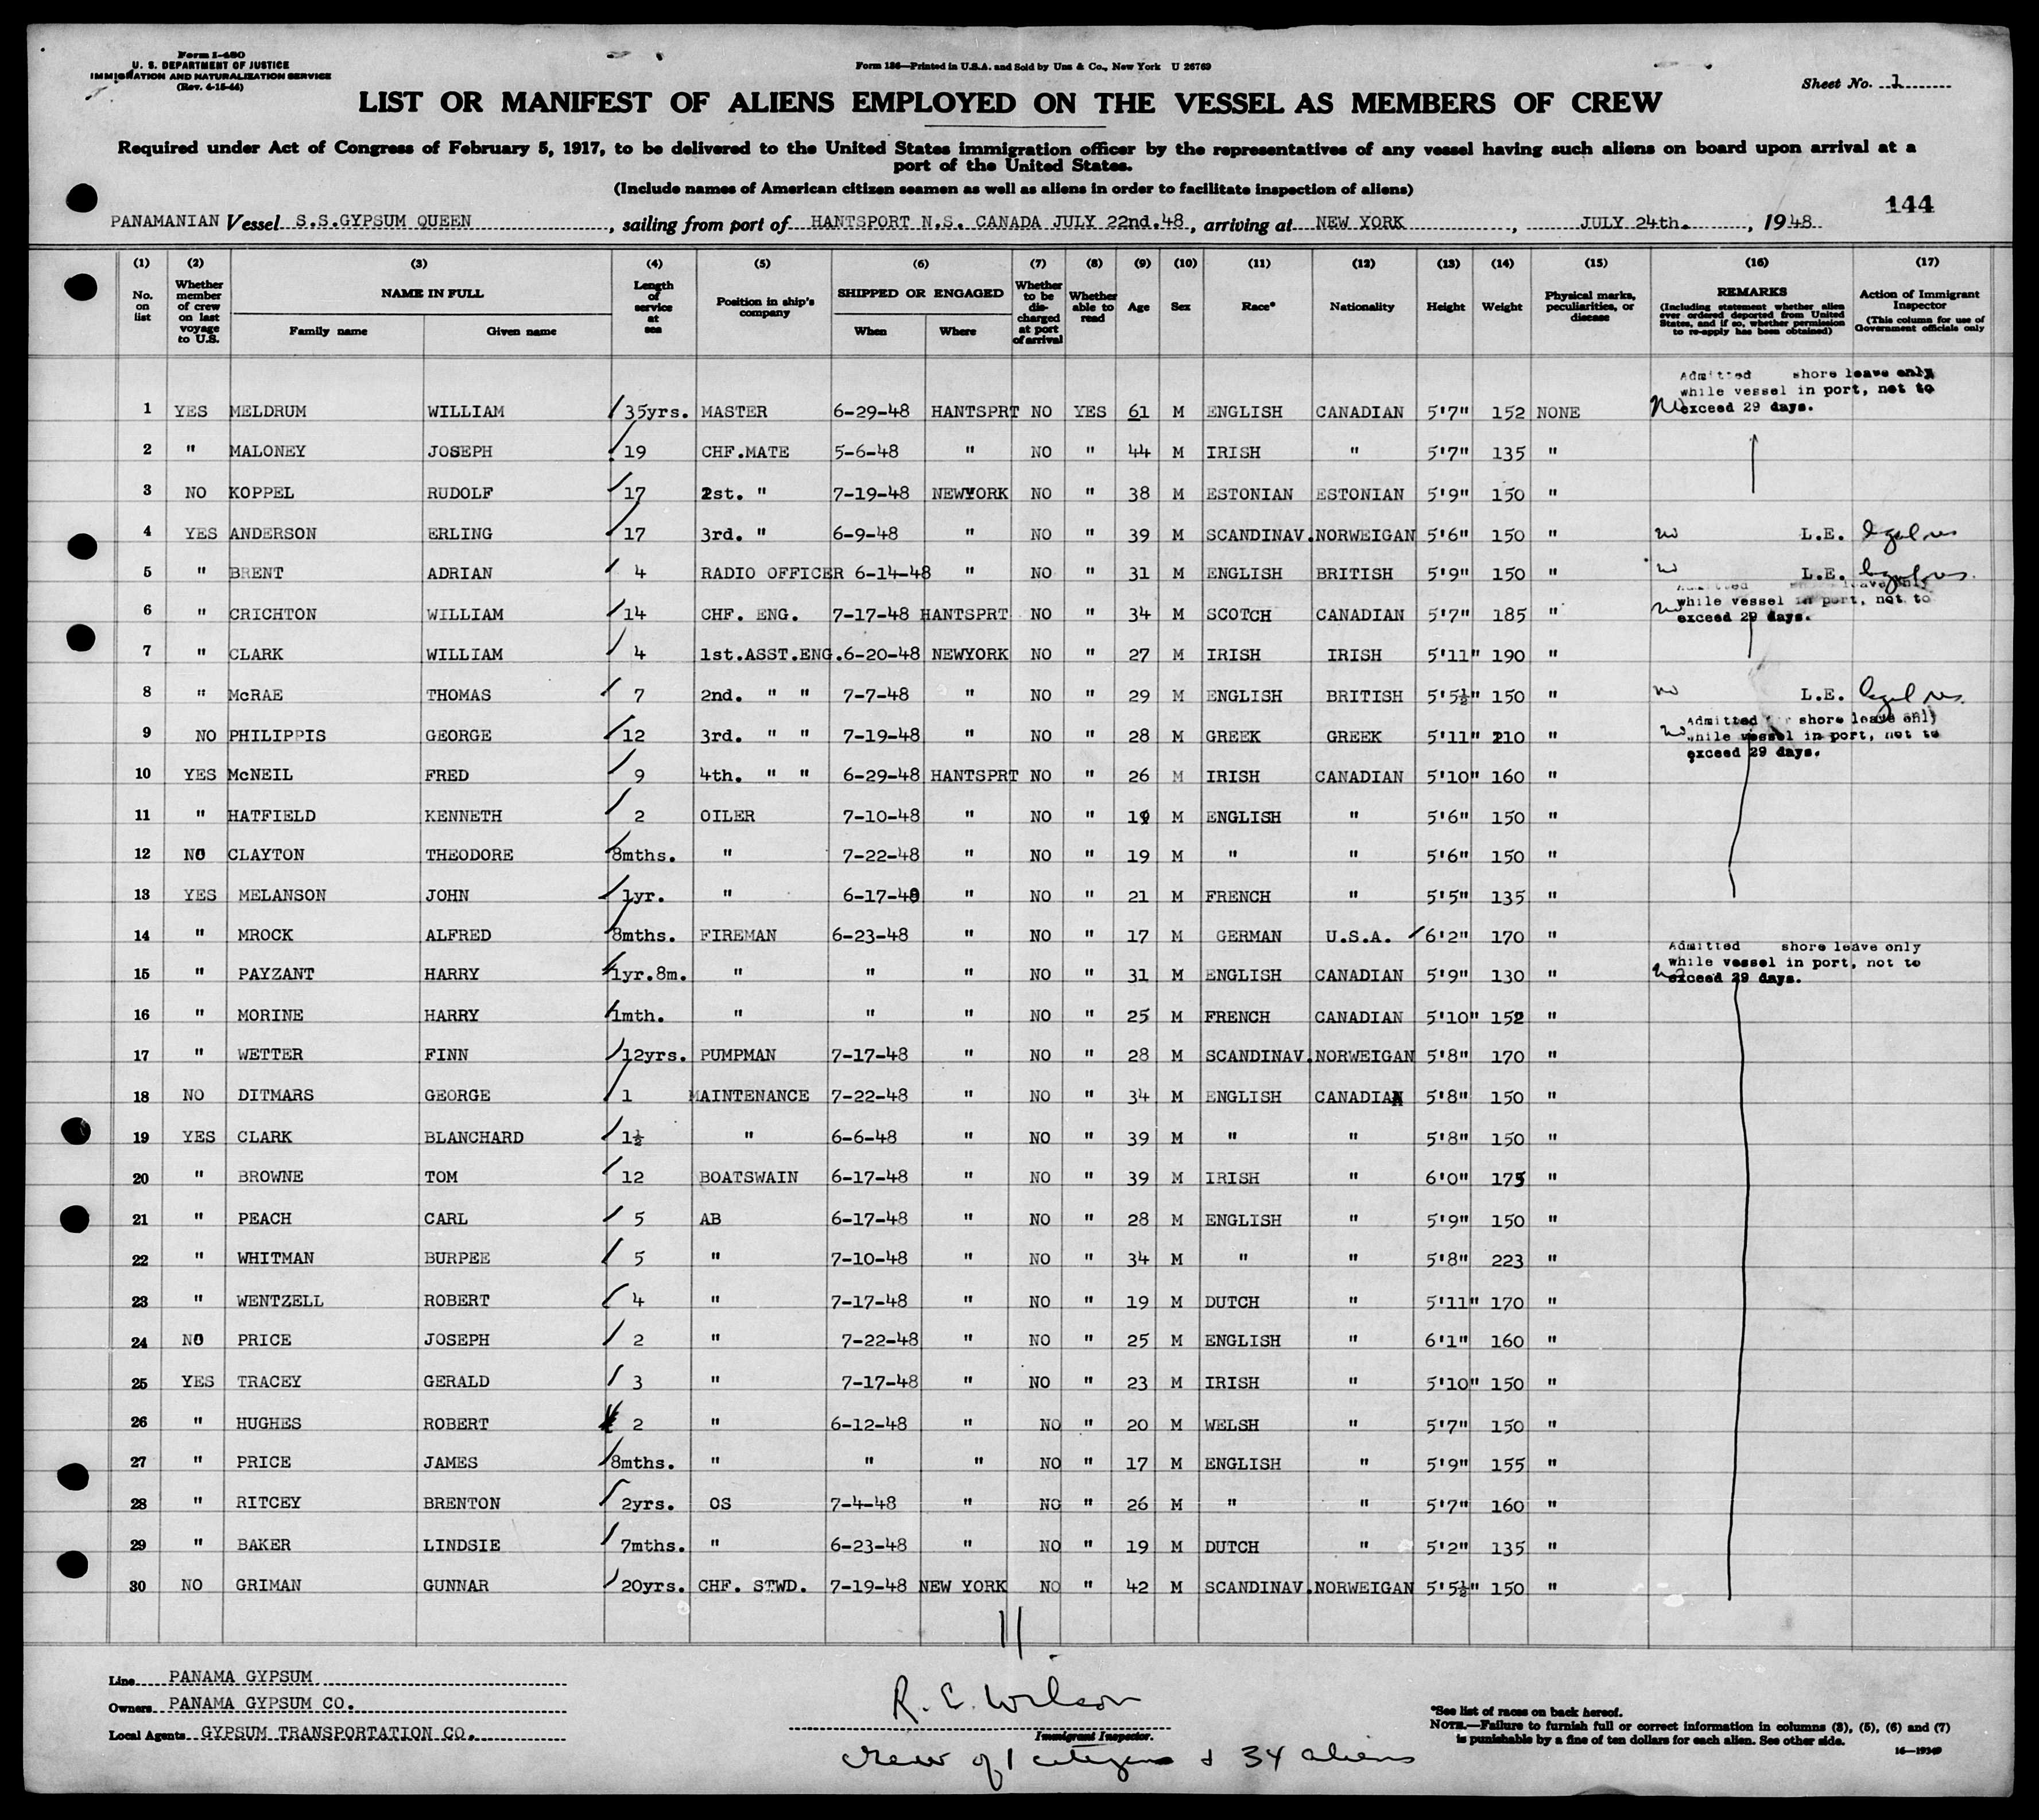 Form I-480
U. S. DEPARTMENT OF JUSTICE
IMMIGRATION AND NATURALIZATION SERVICE
(Rev. 4-15-44)
Form 186—Printed in U.S.A. and Sold by Unz & Co., New York U 26769
Sheet No. 1
LIST OR MANIFEST OF ALIENS EMPLOYED ON THE VESSEL AS MEMBERS OF CREW
Required under Act of Congress of February 5, 1917, to be delivered to the United States immigration officer by the representatives of any vessel having such aliens on board upon arrival at a
port of the United States.
(Include names of American citizen seamen as well as aliens in order to facilitate inspection of aliens)
144
PANAMANIAN Vessel S.S.GYPSUM QUEEN, sailing from port of HANTSPORT N.S. CANADA JULY 22nd.48, arriving at NEW YORK, JULY 24th., 1948
(1) (2) (3) (4) (5) (6) (7) (8) (9) (10) (11) (12) (13) (14) (15) (16) (17)
No. on list
Whether member of crew on last voyage to U.S.
NAME IN FULL
Family name Given name
Length of service at sea
Position in ship's company
SHIPPED OR ENGAGED
When Where
Whether to be discharged at port of arrival
Whether able to read
Age Sex Race* Nationality Height Weight
Physical marks, peculiarities, or disease
REMARKS
(Including statement whether alien ever ordered deported from United States, and if so, whether permission to re-apply has been obtained)
Action of Immigrant Inspector
(This column for use of Government officials only
Admitted shore leave only
while vessel in port, not to
exceed 29 days.
1 YES MELDRUM WILLIAM 35yrs. MASTER 6-29-48 HANTSPRT NO YES 61 M ENGLISH CANADIAN 5'7" 152 NONE No
2 " MALONEY JOSEPH 19 CHF.MATE 5-6-48 " NO " 44 M IRISH " 5'7" 135 "
3 NO KOPPEL RUDOLF 17 2st. " 7-19-48 NEWYORK NO " 38 M ESTONIAN ESTONIAN 5'9" 150 "
4 YES ANDERSON ERLING 17 3rd. " 6-9-48 " NO " 39 M SCANDINAV. NORWEIGAN 5'6" 150 " no L.E. legal res
5 " BRENT ADRIAN 4 RADIO OFFICER 6-14-48 " NO " 31 M ENGLISH BRITISH 5'9" 150 " no L.E. legal res.
Admitted leave only
while vessel in port, not to
exceed 29 days.
6 " CRICHTON WILLIAM 14 CHF. ENG. 7-17-48 HANTSPRT NO " 34 M SCOTCH CANADIAN 5'7" 185 " no
7 " CLARK WILLIAM 4 1st.ASST.ENG. 6-20-48 NEWYORK NO " 27 M IRISH IRISH 5'11" 190 "
8 " McRAE THOMAS 7 2nd. " " 7-7-48 " NO " 29 M ENGLISH BRITISH 5'5½" 150 " no L.E. legal res.
Admitted for shore leave only
while vessel in port, not to
exceed 29 days.
9 NO PHILIPPIS GEORGE 12 3rd. " " 7-19-48 " NO " 28 M GREEK GREEK 5'11" 210 " no
10 YES McNEIL FRED 9 4th. " " 6-29-48 HANTSPRT NO " 26 M IRISH CANADIAN 5'10" 160 "
11 " HATFIELD KENNETH 2 OILER 7-10-48 " NO " 19 M ENGLISH " 5'6" 150 "
12 NO CLAYTON THEODORE 8mths. " 7-22-48 " NO " 19 M " " 5'6" 150 "
13 YES MELANSON JOHN 1yr. " 6-17-48 " NO " 21 M FRENCH " 5'5" 135 "
14 " MROCK ALFRED 8mths. FIREMAN 6-23-48 " NO " 17 M GERMAN U.S.A. 6'2" 170 "
Admitted shore leave only
while vessel in port, not to
exceed 29 days.
15 " PAYZANT HARRY 1yr.8m. " " " NO " 31 M ENGLISH CANADIAN 5'9" 130 " no
16 " MORINE HARRY 1mth. " " " NO " 25 M FRENCH CANADIAN 5'10" 152 "
17 " WETTER FINN 12yrs. PUMPMAN 7-17-48 " NO " 28 M SCANDINAV. NORWEIGAN 5'8" 170 "
18 NO DITMARS GEORGE 1 MAINTENANCE 7-22-48 " NO " 34 M ENGLISH CANADIAN 5'8" 150 "
19 YES CLARK BLANCHARD 1½ " 6-6-48 " NO " 39 M " " 5'8" 150 "
20 " BROWNE TOM 12 BOATSWAIN 6-17-48 " NO " 39 M IRISH " 6'0" 175 "
21 " PEACH CARL 5 AB 6-17-48 " NO " 28 M ENGLISH " 5'9" 150 "
22 " WHITMAN BURPEE 5 " 7-10-48 " NO " 34 M " " 5'8" 223 "
23 " WENTZELL ROBERT 4 " 7-17-48 " NO " 19 M DUTCH " 5'11" 170 "
24 NO PRICE JOSEPH 2 " 7-22-48 " NO " 25 M ENGLISH " 6'1" 160 "
25 YES TRACEY GERALD 3 " 7-17-48 " NO " 23 M IRISH " 5'10" 150 "
26 " HUGHES ROBERT 2 " 6-12-48 " NO " 20 M WELSH " 5'7" 150 "
27 " PRICE JAMES 8mths. " " " NO " 17 M ENGLISH " 5'9" 155 "
28 " RITCEY BRENTON 2yrs. OS 7-4-48 " NO " 26 M " " 5'7" 160 "
29 " BAKER LINDSIE 7mths. " 6-23-48 " NO " 19 M DUTCH " 5'2" 135 "
30 NO GRIMAN GUNNAR 20yrs. CHF. STWD. 7-19-48 NEW YORK NO " 42 M SCANDINAV. NORWEIGAN 5'5½" 150 "
Line PANAMA GYPSUM
Owners PANAMA GYPSUM CO.
Local Agents GYPSUM TRANSPORTATION CO.
R. E. Wilson
Immigrant Inspector.
crew of 1 citizen & 34 aliens
*See list of races on back hereof.
NOTE.—Failure to furnish full or correct information in columns (3), (5), (6) and (7)
is punishable by a fine of ten dollars for each alien. See other side.
16—19349